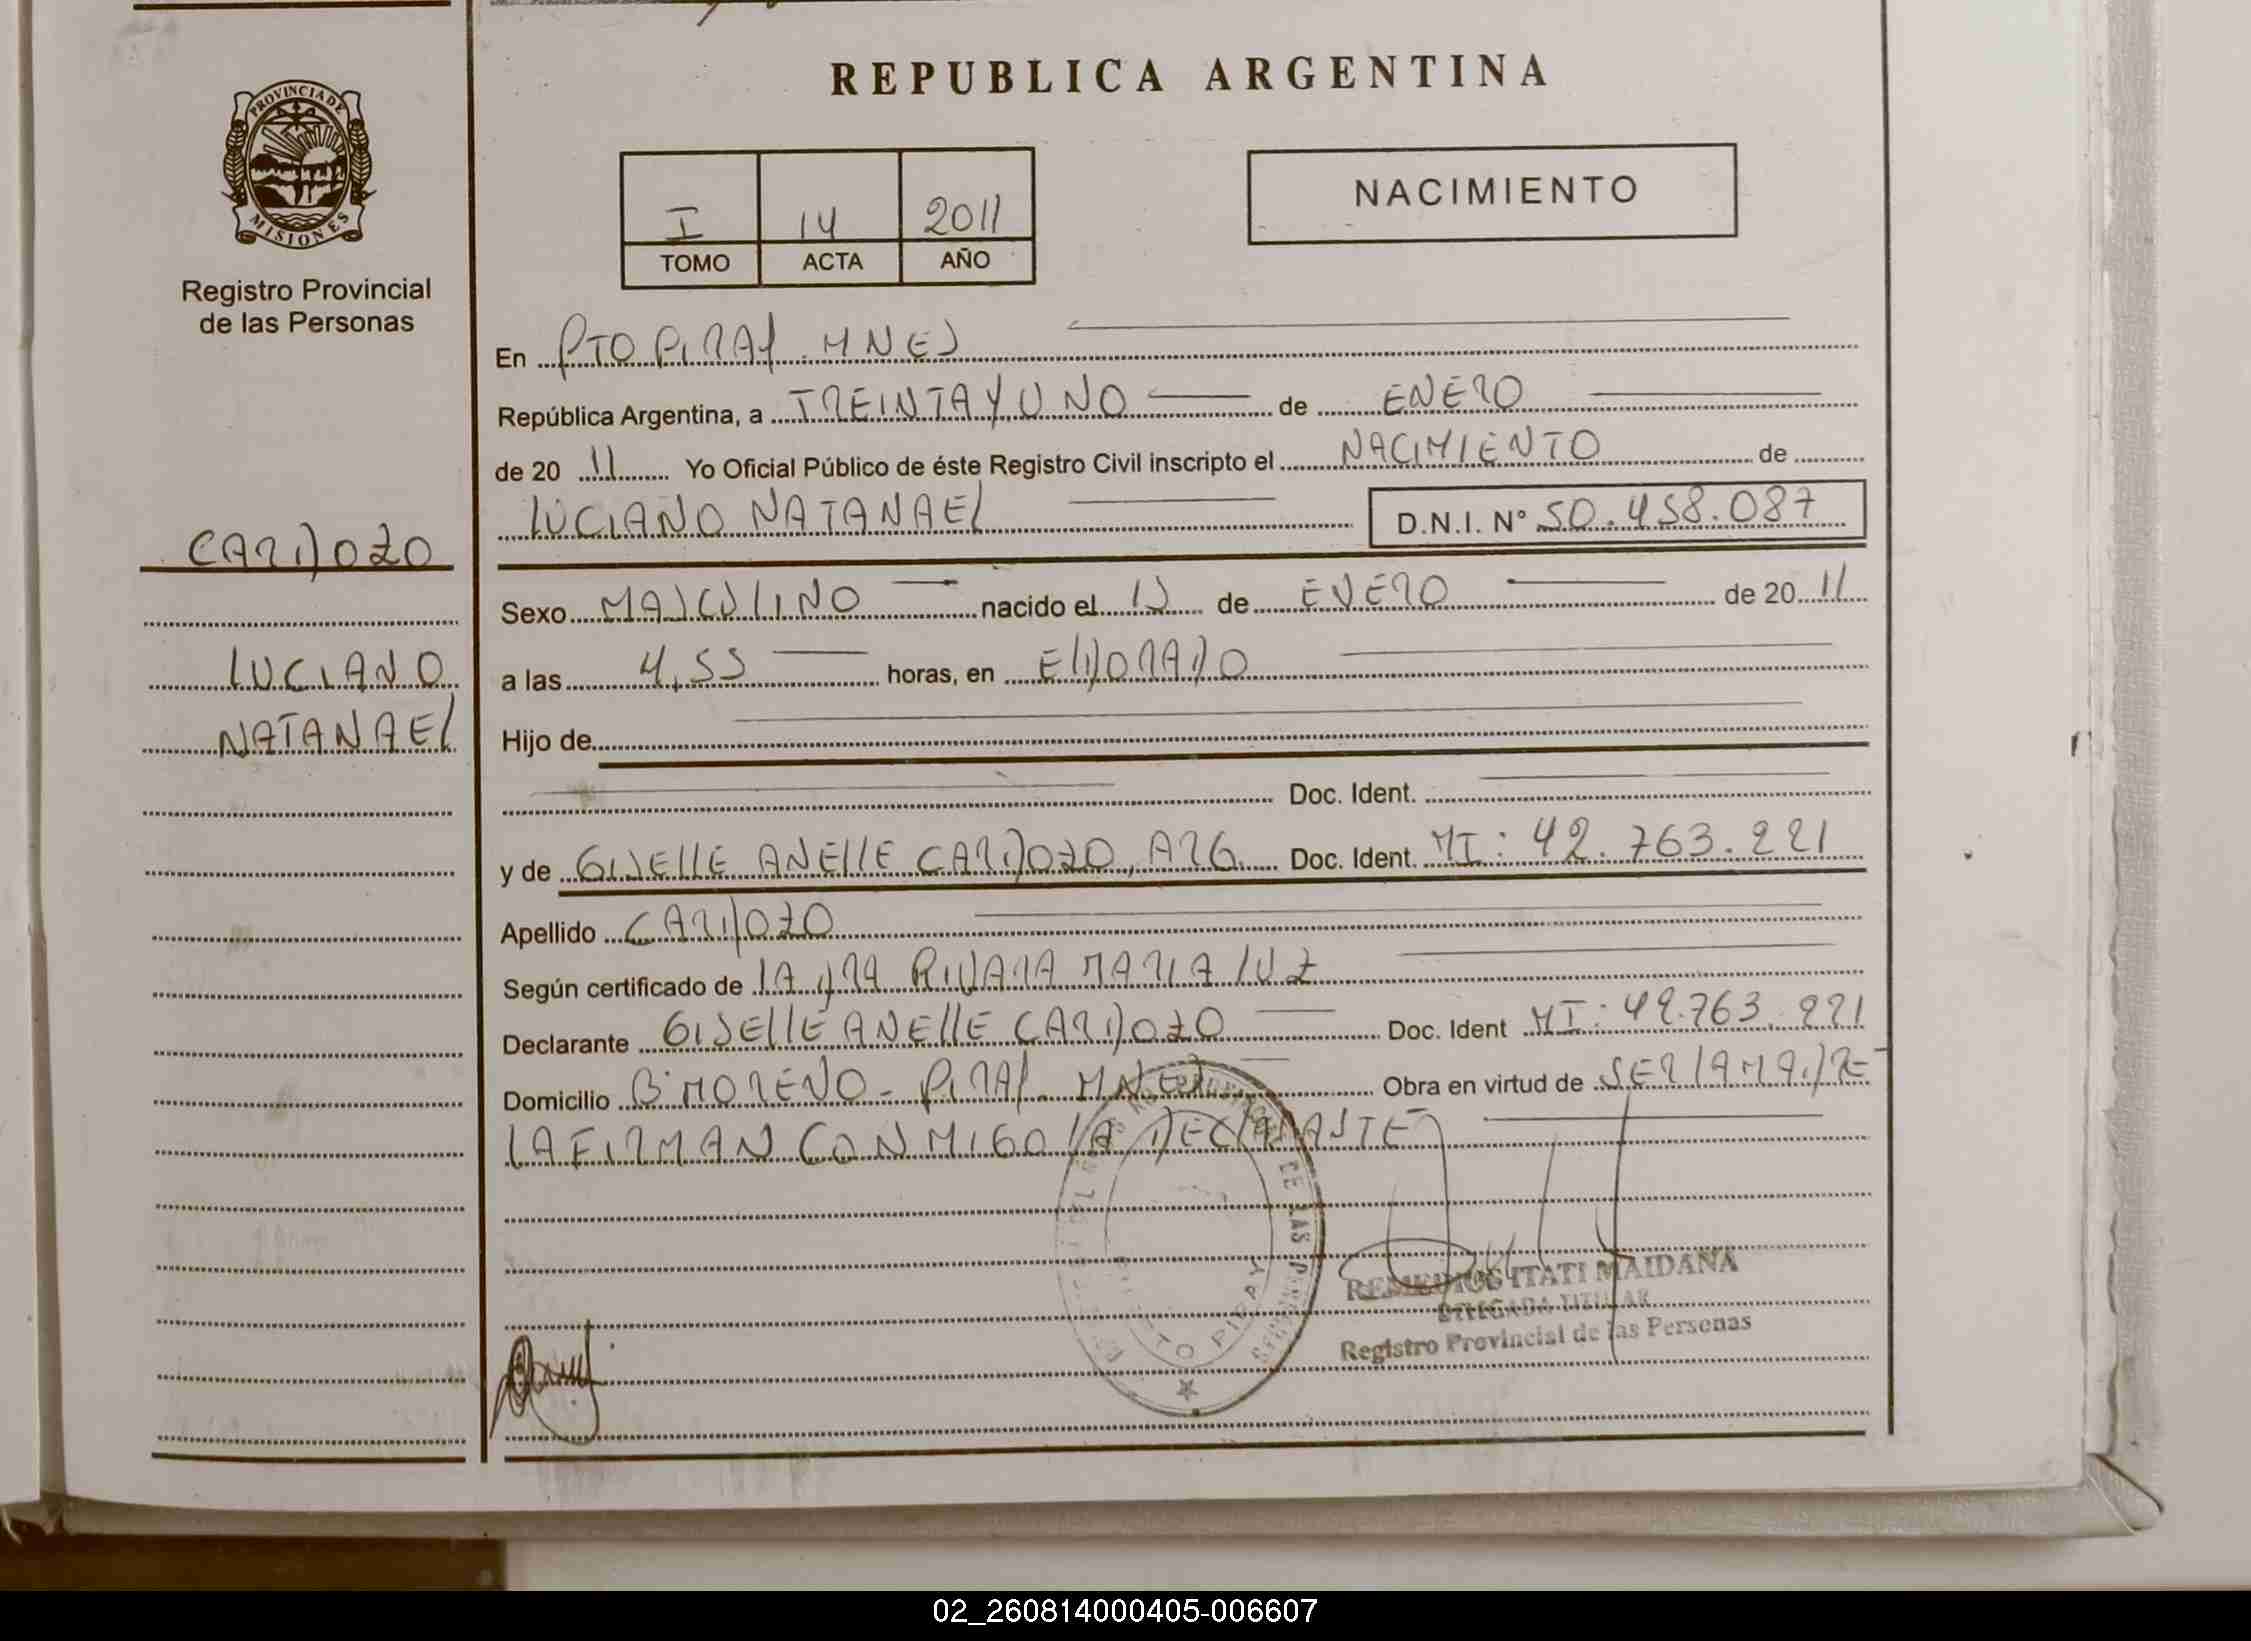 REPUBLICA ARGENTINA
PROVINCIA DE
MISIONES
Registro Provincial
de las Personas
I 14 2011
TOMO ACTA AÑO
NACIMIENTO
En PTO PIRAY MNES
República Argentina, a TREINTA Y UNO de ENERO
de 20 11 Yo Oficial Público de éste Registro Civil inscripto el NACIMIENTO de
LUCIANO NATANAEL D.N.I. N° 50.458.087
CARDOZO
LUCIANO
NATANAEL
Sexo MASCULINO nacido el de ENERO de 20 11
a las 4,55 horas, en ELDORADO
Hijo de
Doc. Ident.
y de GISELLE ANELLE CARDOZO, ARG. Doc. Ident. MI: 42.763.221
Apellido CARDOZO
Según certificado de LA MARIA LUZ
Declarante GISELLE ANELLE CARDOZO Doc. Ident MI: 42.763.221
Domicilio B° MORENO - PIRAY MNES Obra en virtud de SER LA MADRE
LA FIRMAN CONMIGO LA DECLARANTE
DE LAS PERSONAS
PUERTO PIRAY
REMEDIOS ITATI MAIDANA
DELEGADA TITULAR
Registro Provincial de las Personas
02_260814000405-006607